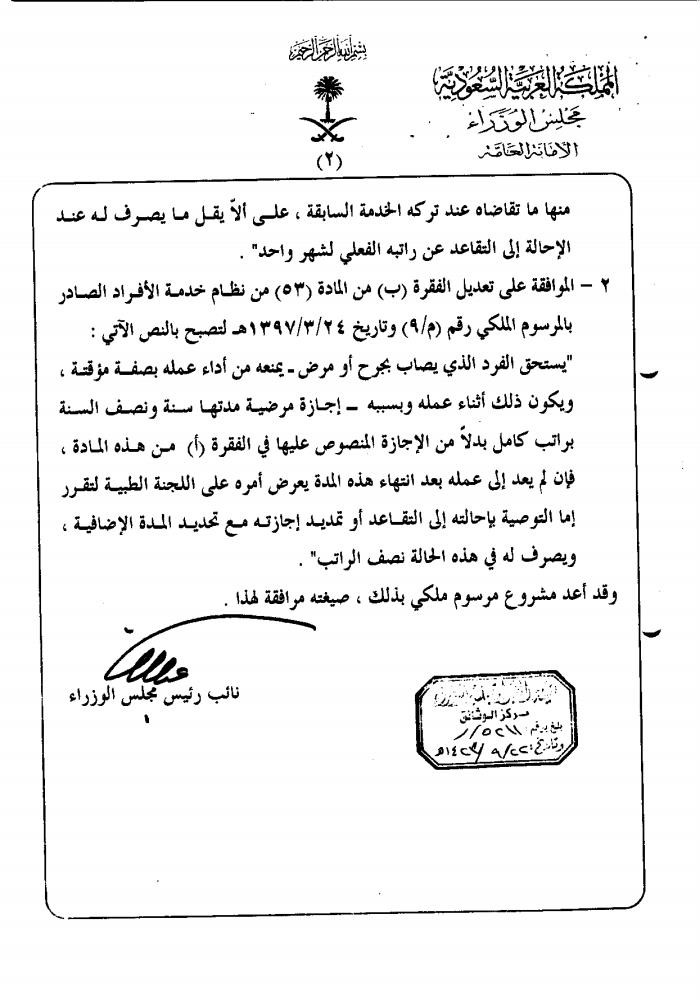 بسم الله الرحمن الرحيم
المملكة العربية السعودية
مجلس الوزراء
الأمانة العامة
(٢)
منها ما تقاضاه عند تركه الخدمة السابقة ، على ألاّ يقل ما يصرف له عند
الإحالة إلى التقاعد عن راتبه الفعلي لشهر واحد" .
٢ – الموافقة على تعديل الفقرة (ب) من المادة (٥٣) من نظام خدمة الأفراد الصادر
بالمرسوم الملكي رقم (م/٩) وتاريخ ١٣٩٧/٣/٢٤هـ لتصبح بالنص الآتي :
"يستحق الفرد الذي يصاب بجرح أو مرض ـ يمنعه من أداء عمله بصفة مؤقتة ،
ويكون ذلك أثناء عمله وبسببه ـ إجازة مرضية مدتها سنة ونصف السنة
براتب كامل بدلاً من الإجازة المنصوص عليها في الفقرة (أ) من هذه المادة ،
فإن لم يعد إلى عمله بعد انتهاء هذه المدة يعرض أمره على اللجنة الطبية لتقرر
إما التوصية بإحالته إلى التقاعد أو تمديد إجازته مع تحديد المدة الإضافية ،
ويصرف له في هذه الحالة نصف الراتب" .
وقد أعد مشروع مرسوم ملكي بذلك ، صيغته مرافقة لهذا .
نائب رئيس مجلس الوزراء
مركز الوثائق
بلغ برقم:
وتاريخ: ٩/٢٢/١٤٢٣هـ